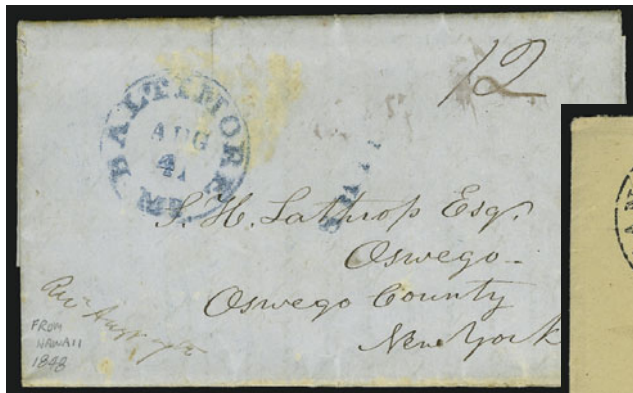 12
BALTIMORE
AUG
4
Md
SHIP
S. H. Lathrop Esq.
Oswego -
Oswego County
New York
FROM
HAWAII
1848